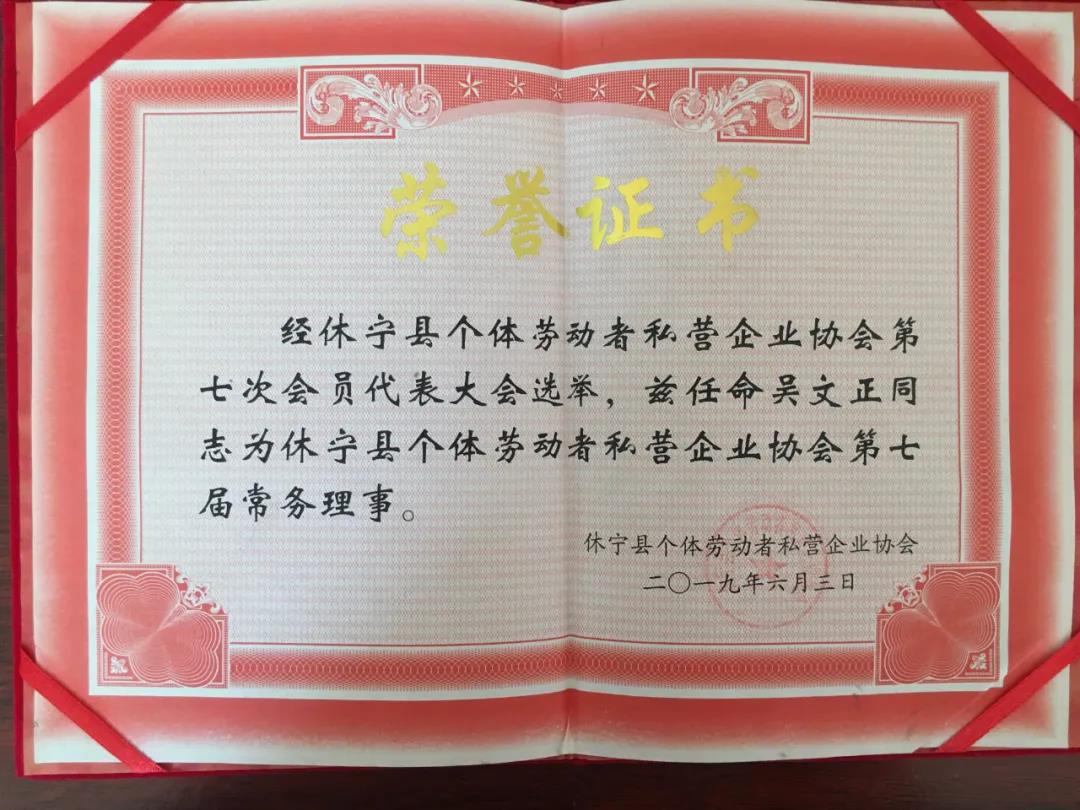 荣誉证书
经休宁县个体劳动者私营企业协会第
七次会员代表大会选举，兹任命吴文正同
志为休宁县个体劳动者私营企业协会第七
届常务理事。
休宁县个体劳动者私营企业协会
二〇一九年六月三日